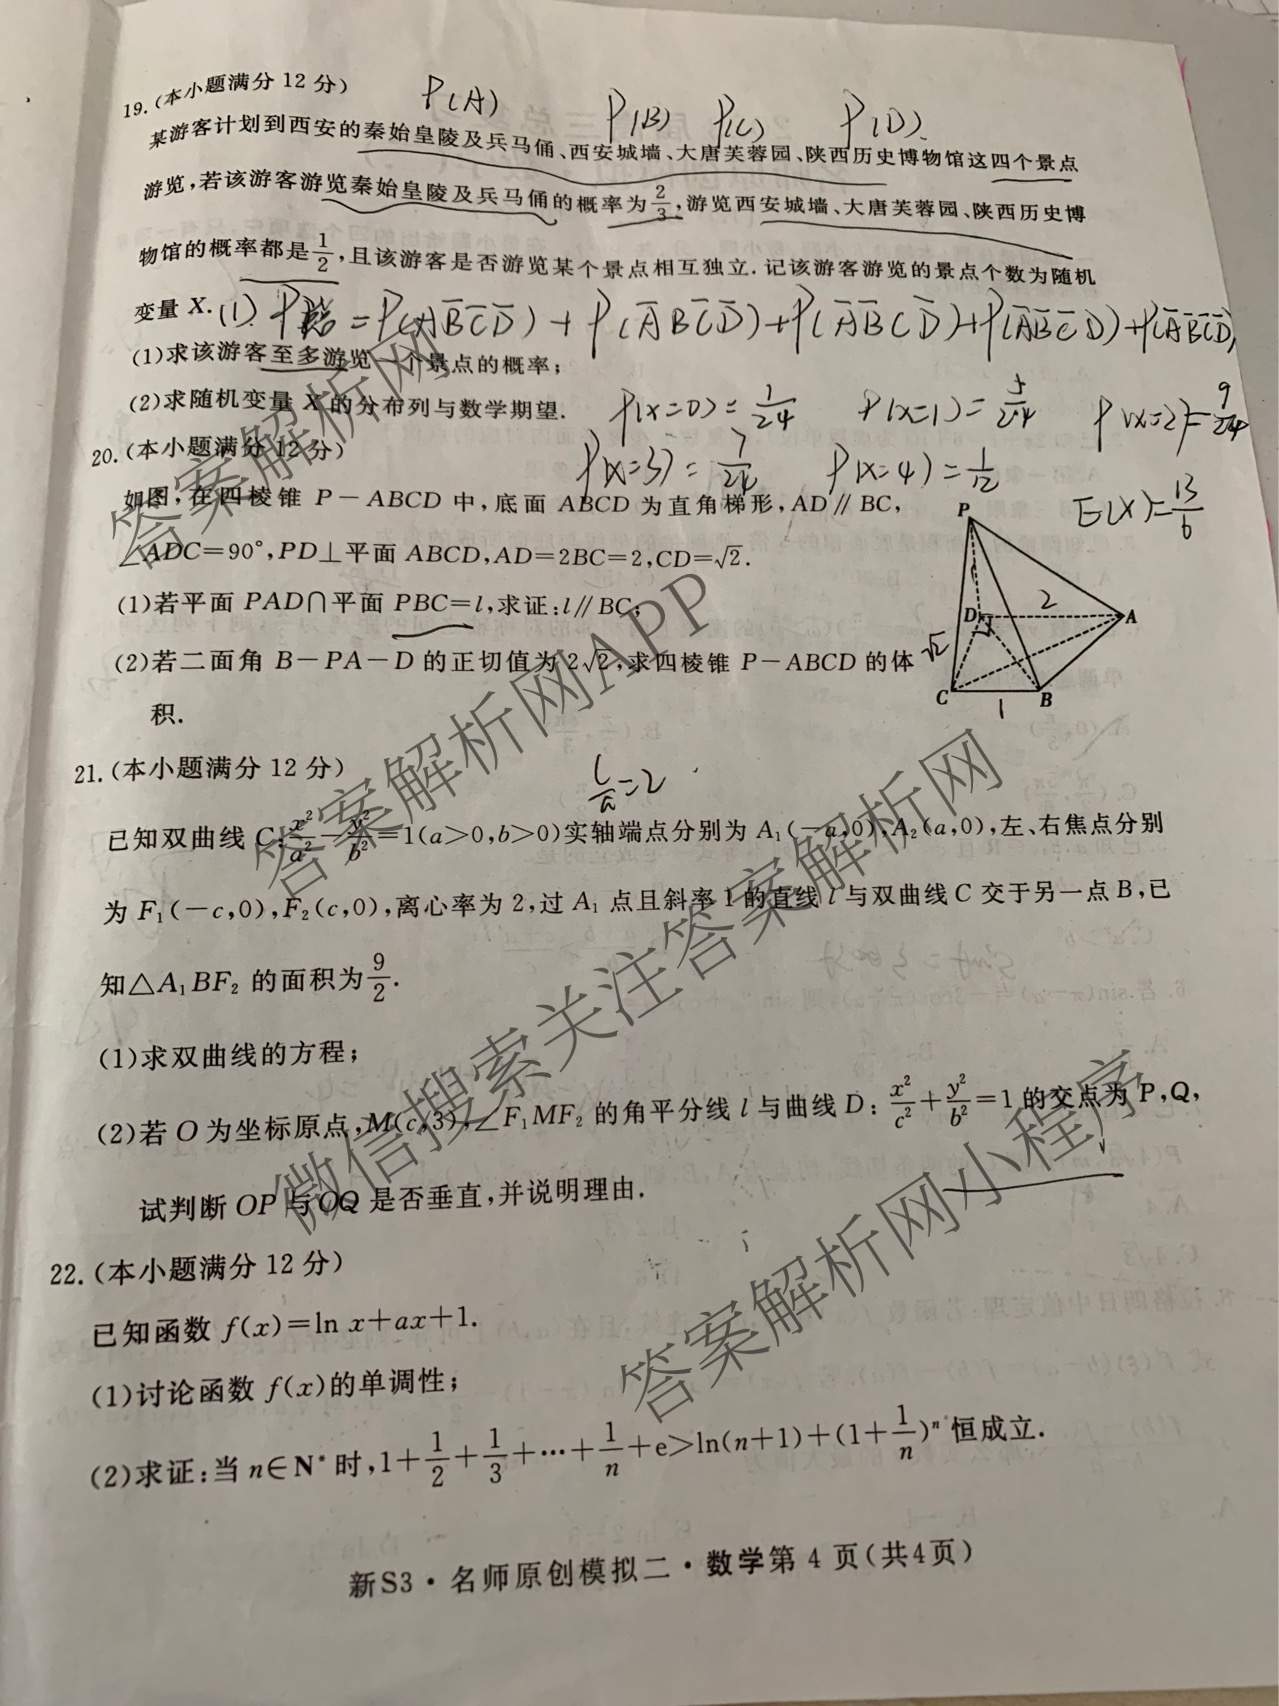 19.(本小题满分 12 分)
P(A) P(B) P(C) P(D).
某游客计划到西安的秦始皇陵及兵马俑、西安城墙、大唐芙蓉园、陕西历史博物馆这四个景点
游览,若该游客游览秦始皇陵及兵马俑的概率为2/3,游览西安城墙、大唐芙蓉园、陕西历史博
物馆的概率都是1/2,且该游客是否游览某个景点相互独立.记该游客游览的景点个数为随机
变量 X.
(1). P = P(AB̅C̅D̅) + P(A̅BC̅D̅) + P(A̅B̅CD̅) + P(A̅B̅C̅D) + P(A̅B̅C̅D̅)
(1)求该游客至多游览一个景点的概率;
(2)求随机变量 X 的分布列与数学期望.
P(X=0)=1/24 P(X=1)=5/24 P(X=2)=9/24
P(X=3)=7/24 P(X=4)=1/12
E(X)=13/6
20.(本小题满分 12 分)
如图,在四棱锥 P-ABCD 中,底面 ABCD 为直角梯形,AD∥BC,
∠ADC=90°,PD⊥平面 ABCD,AD=2BC=2,CD=√2.
(1)若平面 PAD∩平面 PBC=l,求证:l∥BC;
(2)若二面角 B-PA-D 的正切值为 2√2,求四棱锥 P-ABCD 的体
积.
P
D 2 A
√2
C 1 B
21.(本小题满分 12 分)
c/a=2
已知双曲线 C:x²/a²-y²/b²=1(a>0,b>0)实轴端点分别为 A₁(-a,0),A₂(a,0),左、右焦点分别
为 F₁(-c,0),F₂(c,0),离心率为 2,过 A₁ 点且斜率 1 的直线 l 与双曲线 C 交于另一点 B,已
知△A₁BF₂ 的面积为9/2.
(1)求双曲线的方程;
(2)若 O 为坐标原点,M(c,3),∠F₁MF₂ 的角平分线 l 与曲线 D:x²/c²+y²/b²=1 的交点为 P,Q,
试判断 OP 与 OQ 是否垂直,并说明理由.
22.(本小题满分 12 分)
已知函数 f(x)=ln x+ax+1.
(1)讨论函数 f(x)的单调性;
(2)求证:当 n∈N*时,1+1/2+1/3+…+1/n+e>ln(n+1)+(1+1/n)ⁿ 恒成立.
新S3·名师原创模拟二·数学第 4 页(共4页)
答案解析网
答案解析网APP
微信搜索关注答案解析网
答案解析网小程序